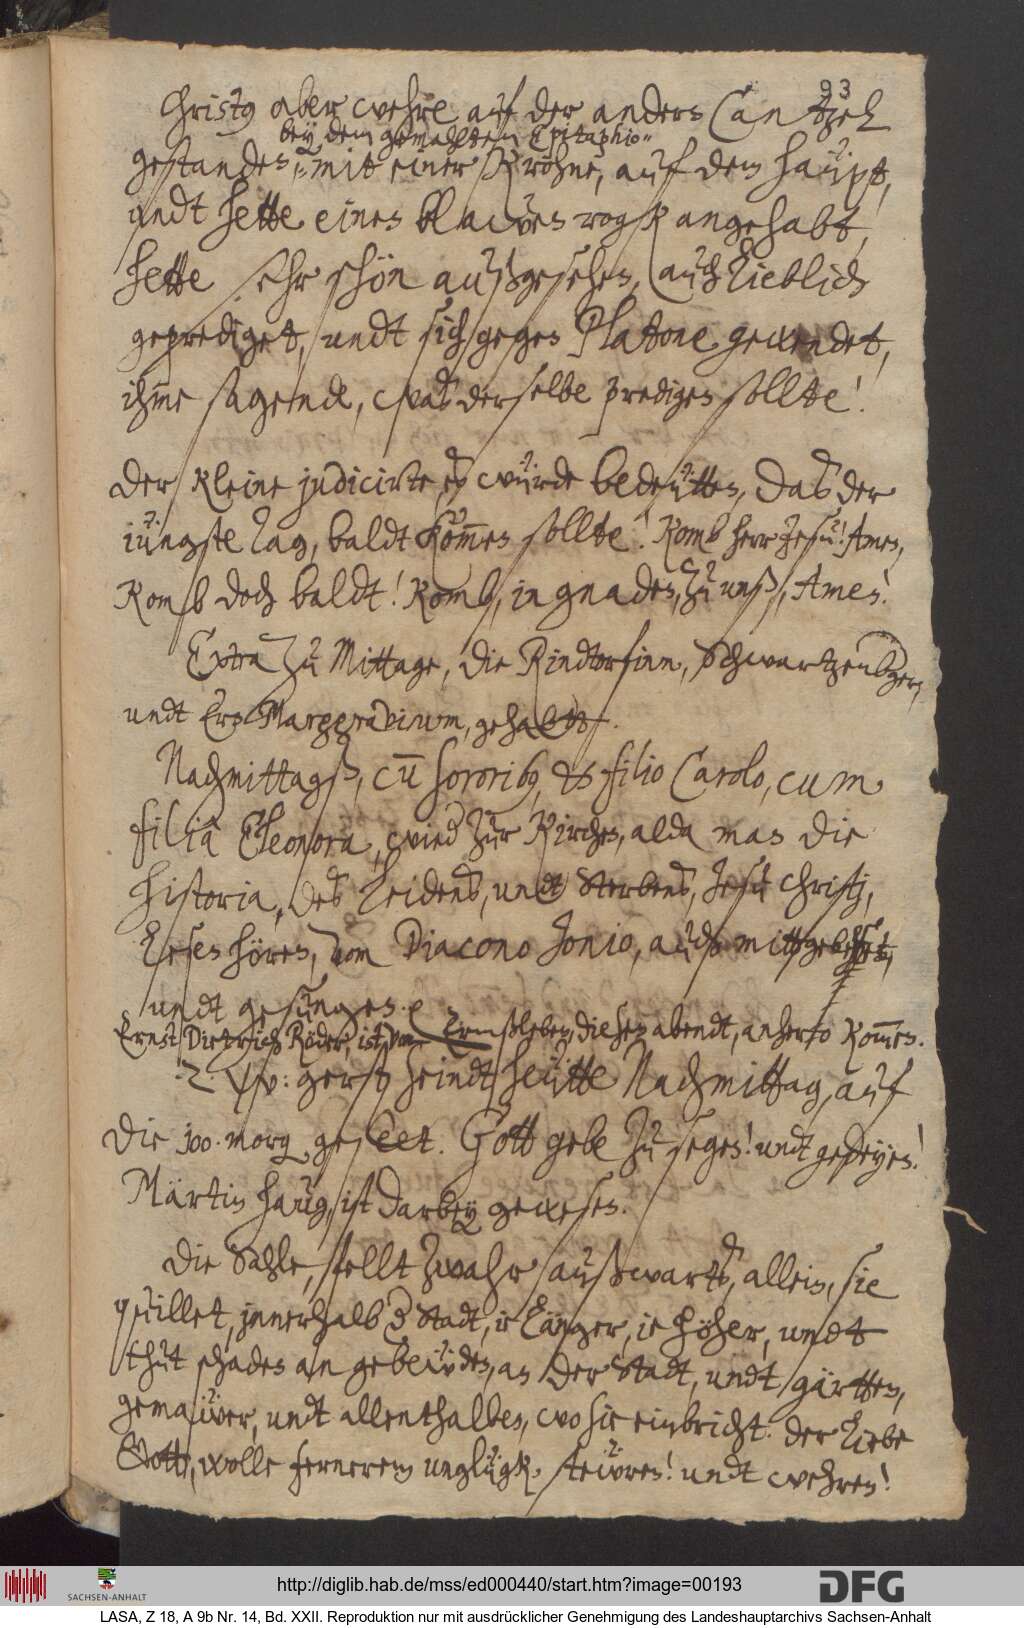 93
Christ9 aber wehre auf der andern Cantzel
bey dem gemahltem Epitaphio"
gestanden, "mit einer Krohne, auf dem haüpt,
undt hette einen blawen rogk angehabt,
hette sehr schön außgesehen, auch Lieblich
geprediget, undt sich gegen Platone gewendet,
ihme sagende, waß derselbe predigen sollte!
Der Kleine judicirte, es würde bedeütten, daß der
iüngste Tag, baldt kom̅en sollte! Komb herr Jesu! Amen,
Komb doch baldt! Komb, in gnaden, zu unß, Amen!
Extra zu Mittage, die Rindtorfinn, Schwartzenbger,
undt Ern Marggravium, gehabtt.
Nachmittagß, cu̅ sororib9, et filio Carolo, cum
filia Eleonora, wied zur Kirchen, alda man die
historia, deß Leidens, undt Sterbens, Jesu Christj,
Lesen hören, vom Diacono Jonio, auch mitt gebehtet,
undt gesungen.
Ernst Dietrich Röder, ist von Ermßleben, diesen abendt, anhero kom̅en.
2 W: gersten seindt heütte Nachmittag, auf
die 100. morg geseet. Gott gebe zu segen! undt gedeyen!
Märtin haug, ist darbey gewesen.
Die Sahle, fellt zwahr außwarts, allein, sie
quillet, innerhalb d Stadt, ie länger, ie höher, undt
thut schaden an gebeüden, an der Stadt, undt gärtten,
gemaüer, undt allenthalben, wo sie einbricht. der Liebe
Gott, wolle fernerem unglügk, steüren! undt wehren!
SACHSEN-ANHALT
http://diglib.hab.de/mss/ed000440/start.htm?image=00193
DFG
LASA, Z 18, A 9b Nr. 14, Bd. XXII. Reproduktion nur mit ausdrücklicher Genehmigung des Landeshauptarchivs Sachsen-Anhalt